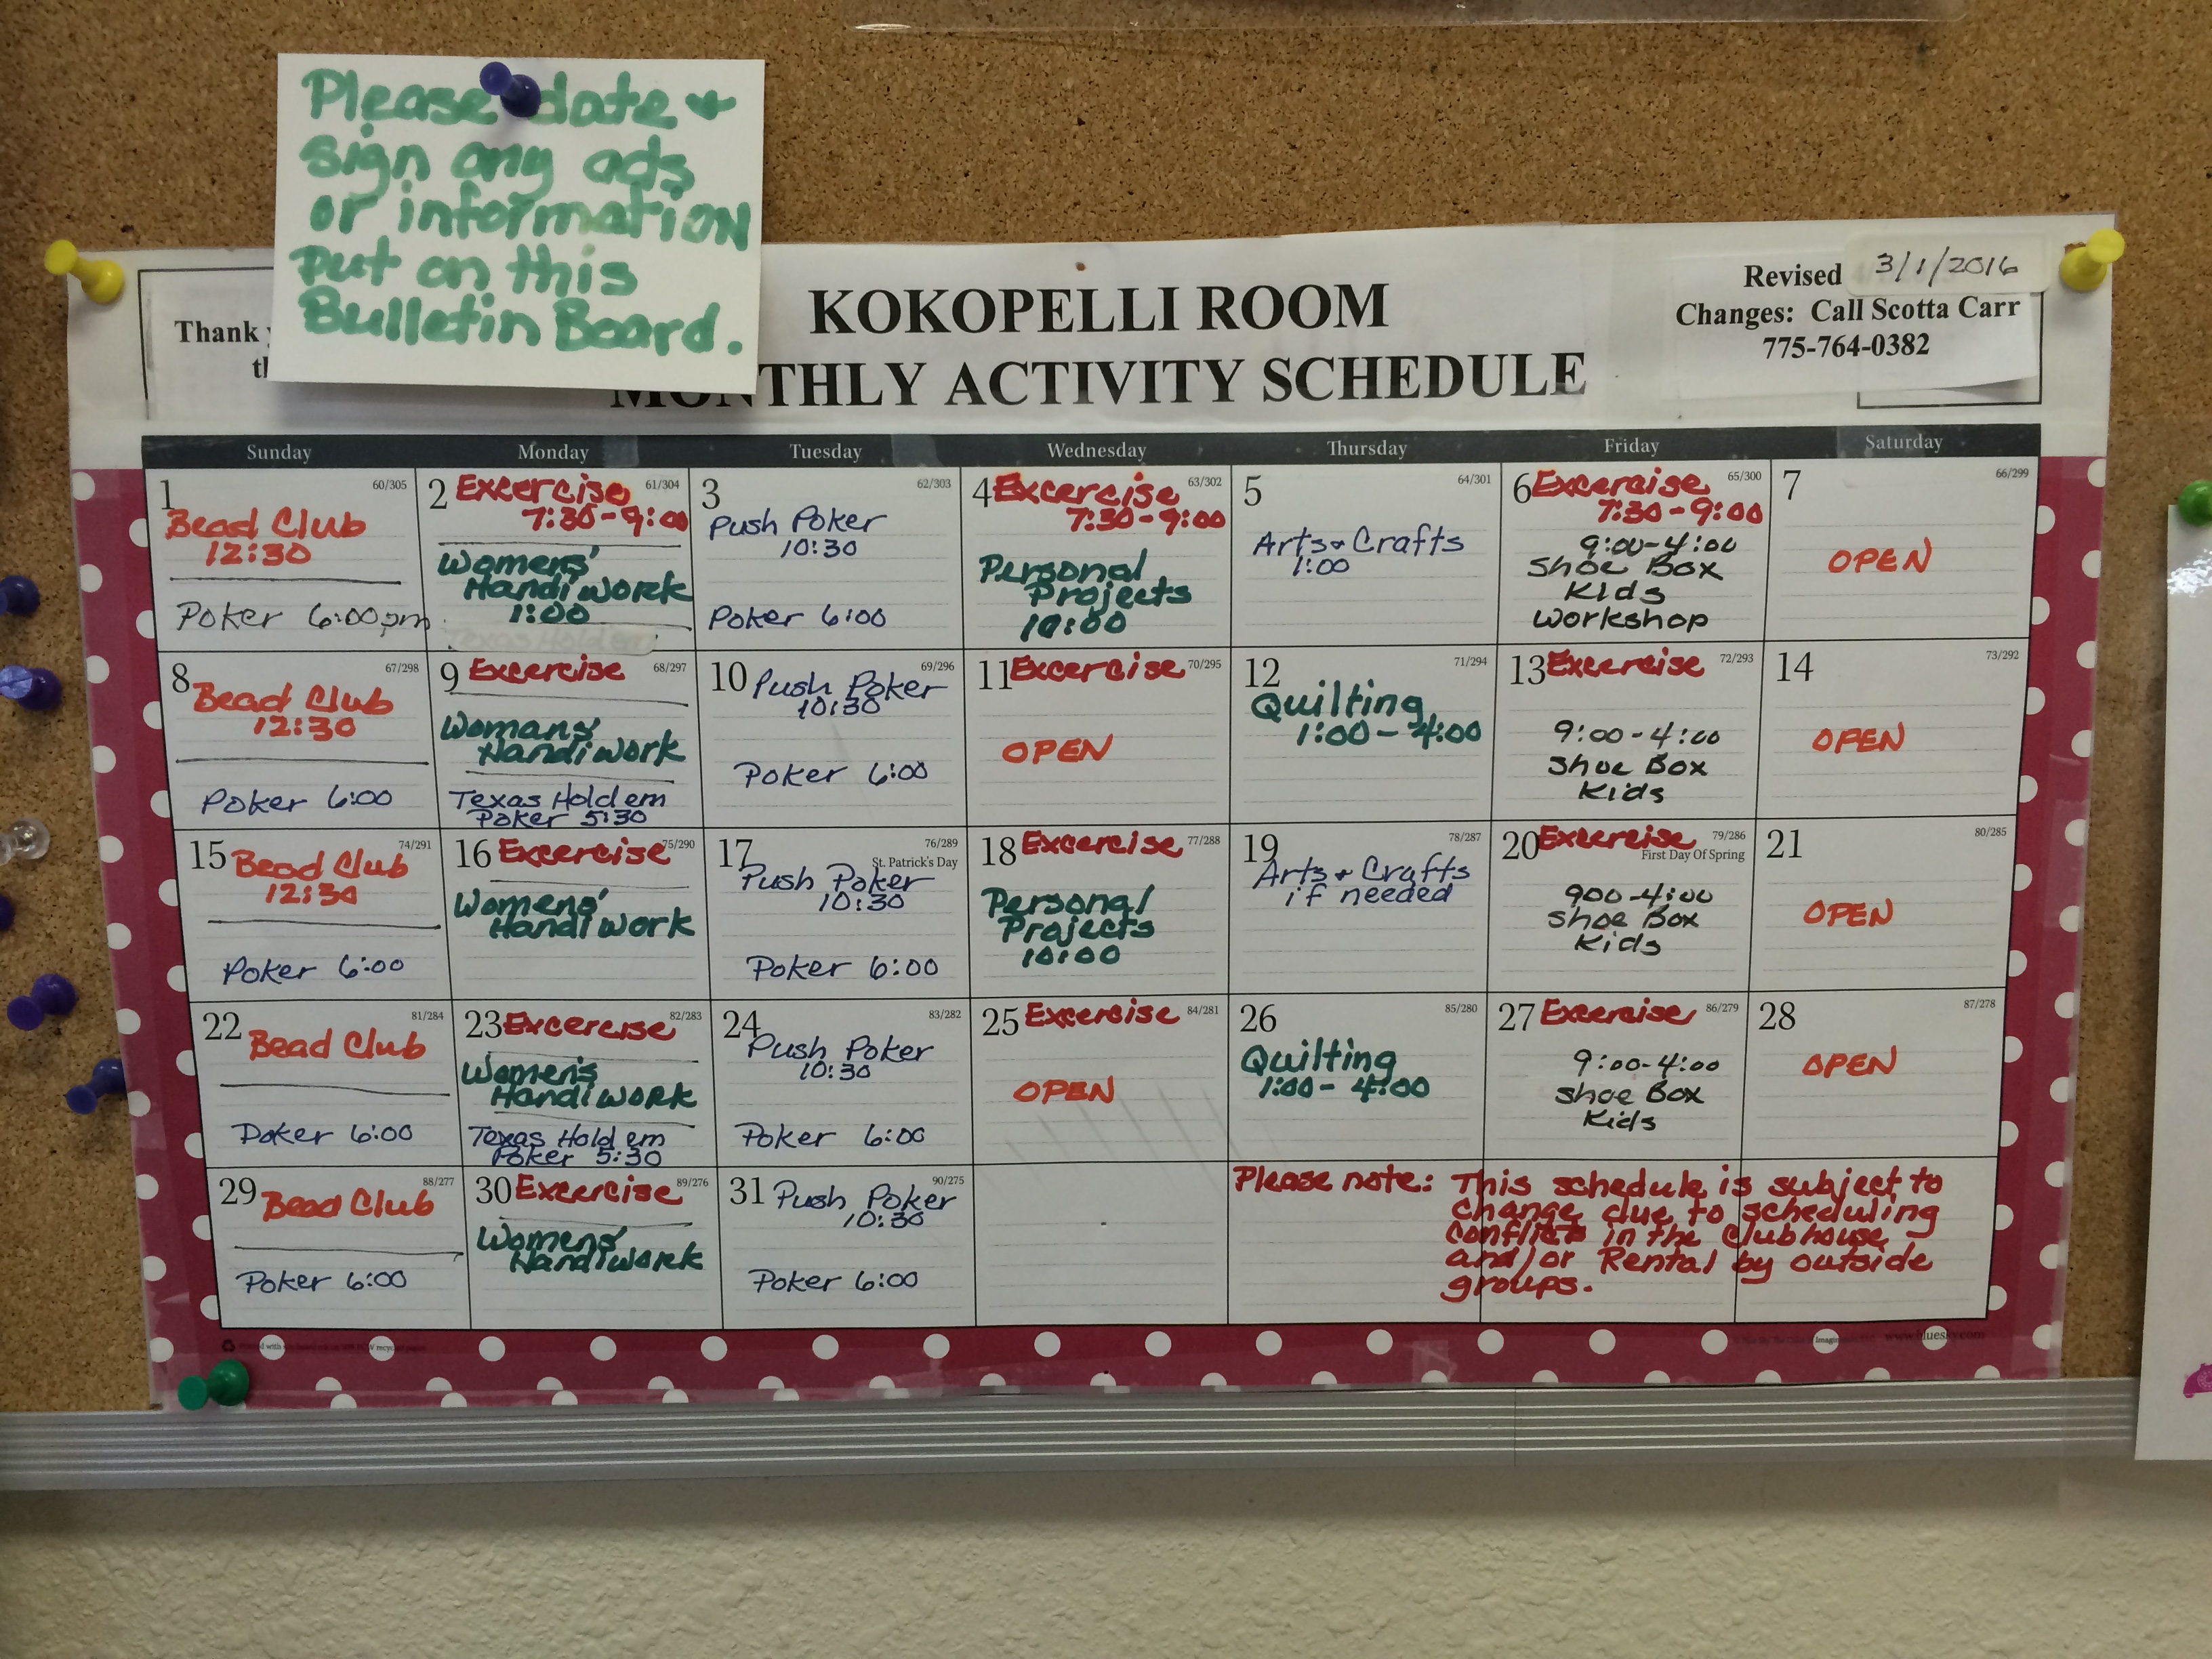 Please date +
sign any ads
or information
put on this
Bulletin Board.
Thank
KOKOPELLI ROOM
MONTHLY ACTIVITY SCHEDULE
Revised 3/1/2016
Changes: Call Scotta Carr
775-764-0382
Sunday Monday Tuesday Wednesday Thursday Friday Saturday
1 60/305
Bead Club
12:30
Poker 6:00pm
2 Excercise 61/304
7:30-9:00
Womens'
Handiwork
1:00
Texas Hold em
3 62/303
Push Poker
10:30
Poker 6:00
4 Excercise 63/302
7:30-9:00
Personal
Projects
10:00
5 64/301
Arts & Crafts
1:00
6 Excercise 65/300
7:30-9:00
9:00-4:00
Shoe Box
Kids
Workshop
7 66/299
OPEN
8 67/298
Bead Club
12:30
Poker 6:00
9 Excercise 68/297
Womans'
Handiwork
Texas Hold em
Poker 5:30
10 69/296
Push Poker
10:30
Poker 6:00
11 Excercise 70/295
OPEN
12 71/294
Quilting
1:00-4:00
13 Excercise 72/293
9:00-4:00
Shoe Box
Kids
14 73/292
OPEN
15 74/291
Bead Club
12:30
Poker 6:00
16 Excercise 75/290
Womens'
Handiwork
17 76/289
St. Patrick's Day
Push Poker
10:30
Poker 6:00
18 Excercise 77/288
Personal
Projects
10:00
19 78/287
Arts & Crafts
if needed
20 Excercise 79/286
First Day Of Spring
900-4:00
Shoe Box
Kids
21 80/285
OPEN
22 81/284
Bead Club
Poker 6:00
23 Excercise 82/283
Women's
Handiwork
Texas Hold em
Poker 5:30
24 83/282
Push Poker
10:30
Poker 6:00
25 Excercise 84/281
OPEN
26 85/280
Quilting
1:00-4:00
27 Excercise 86/279
9:00-4:00
Shoe Box
Kids
28 87/278
OPEN
29 88/277
Bead Club
Poker 6:00
30 Excercise 89/276
Womens'
Handiwork
31 90/275
Push Poker
10:30
Poker 6:00
Please note: This schedule is subject to
change due to scheduling
conflicts in the Clubhouse
and/or Rental by outside
groups.
www.bluesky.com